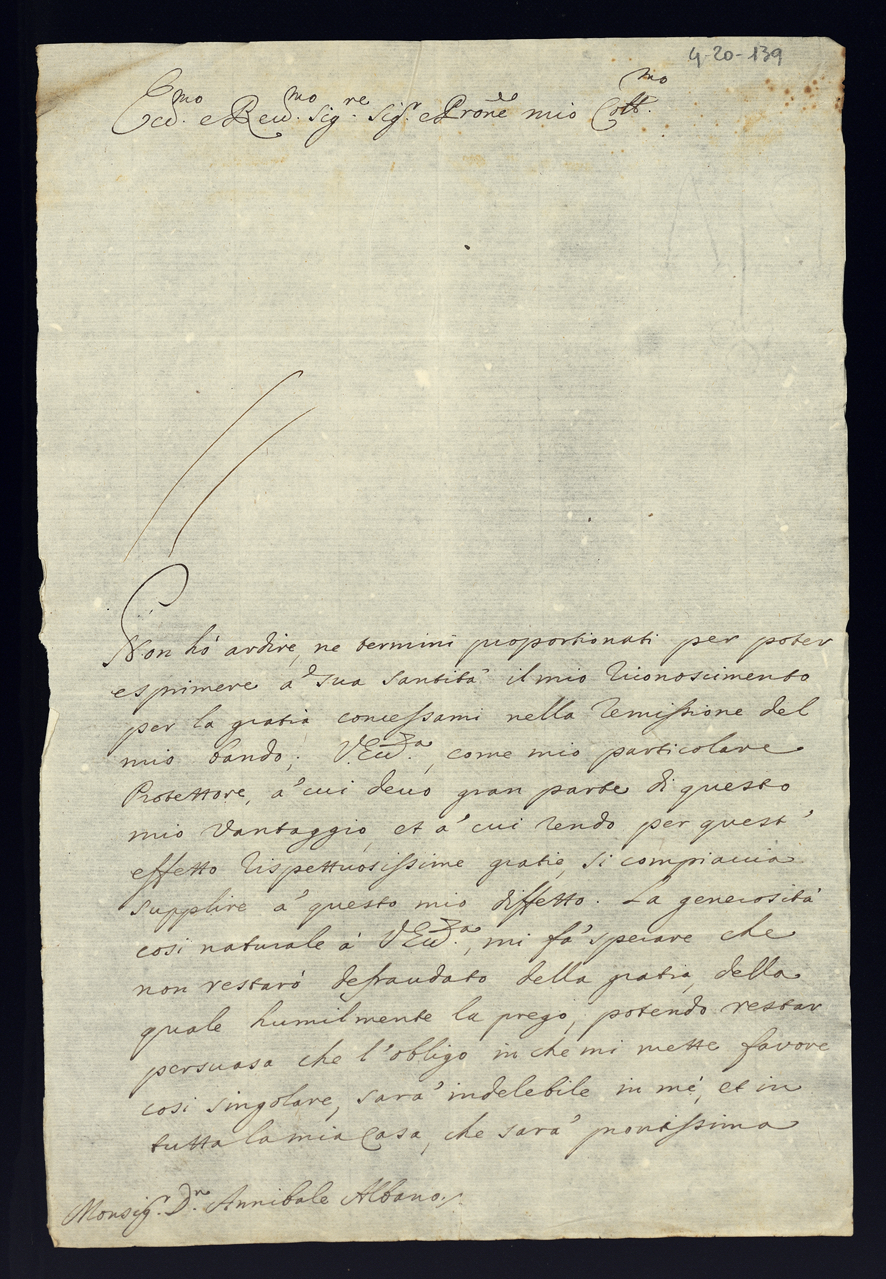 4-20-139
Ecc.mo e Reu.mo Sig.re Sig.r e Prone mio Coll.mo
Non hò ardire, ne termini proportionati per poter
esprimere à sua santità il mio riconoscimento
per la gratia concessami nella remissione del
mio bando; V. Ecc.za, come mio particolare
Protettore, à cui deuo gran parte di questo
mio vantaggio, et à cui rendo per quest'
effetto rispettuosissime gratie, si compiaccia
supplire à questo mio diffetto. La generosità
cosi naturale à V. Ecc.za, mi fà sperare che
non restarò defraudato della gratia, della
quale humilmente la prego, potendo restar
persuasa che l'obligo in che mi mette fauore
cosi singolare, sarà indelebile in mè, et in
tutta la mia Casa, che sarà prontissima
Monsig.r D.n Annibale Albano./